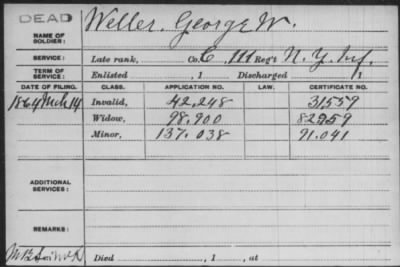 DEAD
Weller, George W.
NAME OF SOLDIER:
SERVICE: Late rank, Co. C, 111 Reg't N. Y. Inf.
TERM OF SERVICE: Enlisted , 1 Discharged , 1
DATE OF FILING. CLASS. APPLICATION NO. LAW. CERTIFICATE NO.
1864 Mch 14 Invalid, 42,248 31557
Widow, 98,900
Minor, 137,038 91,041
ADDITIONAL SERVICES:
REMARKS:
Died , 1 , at